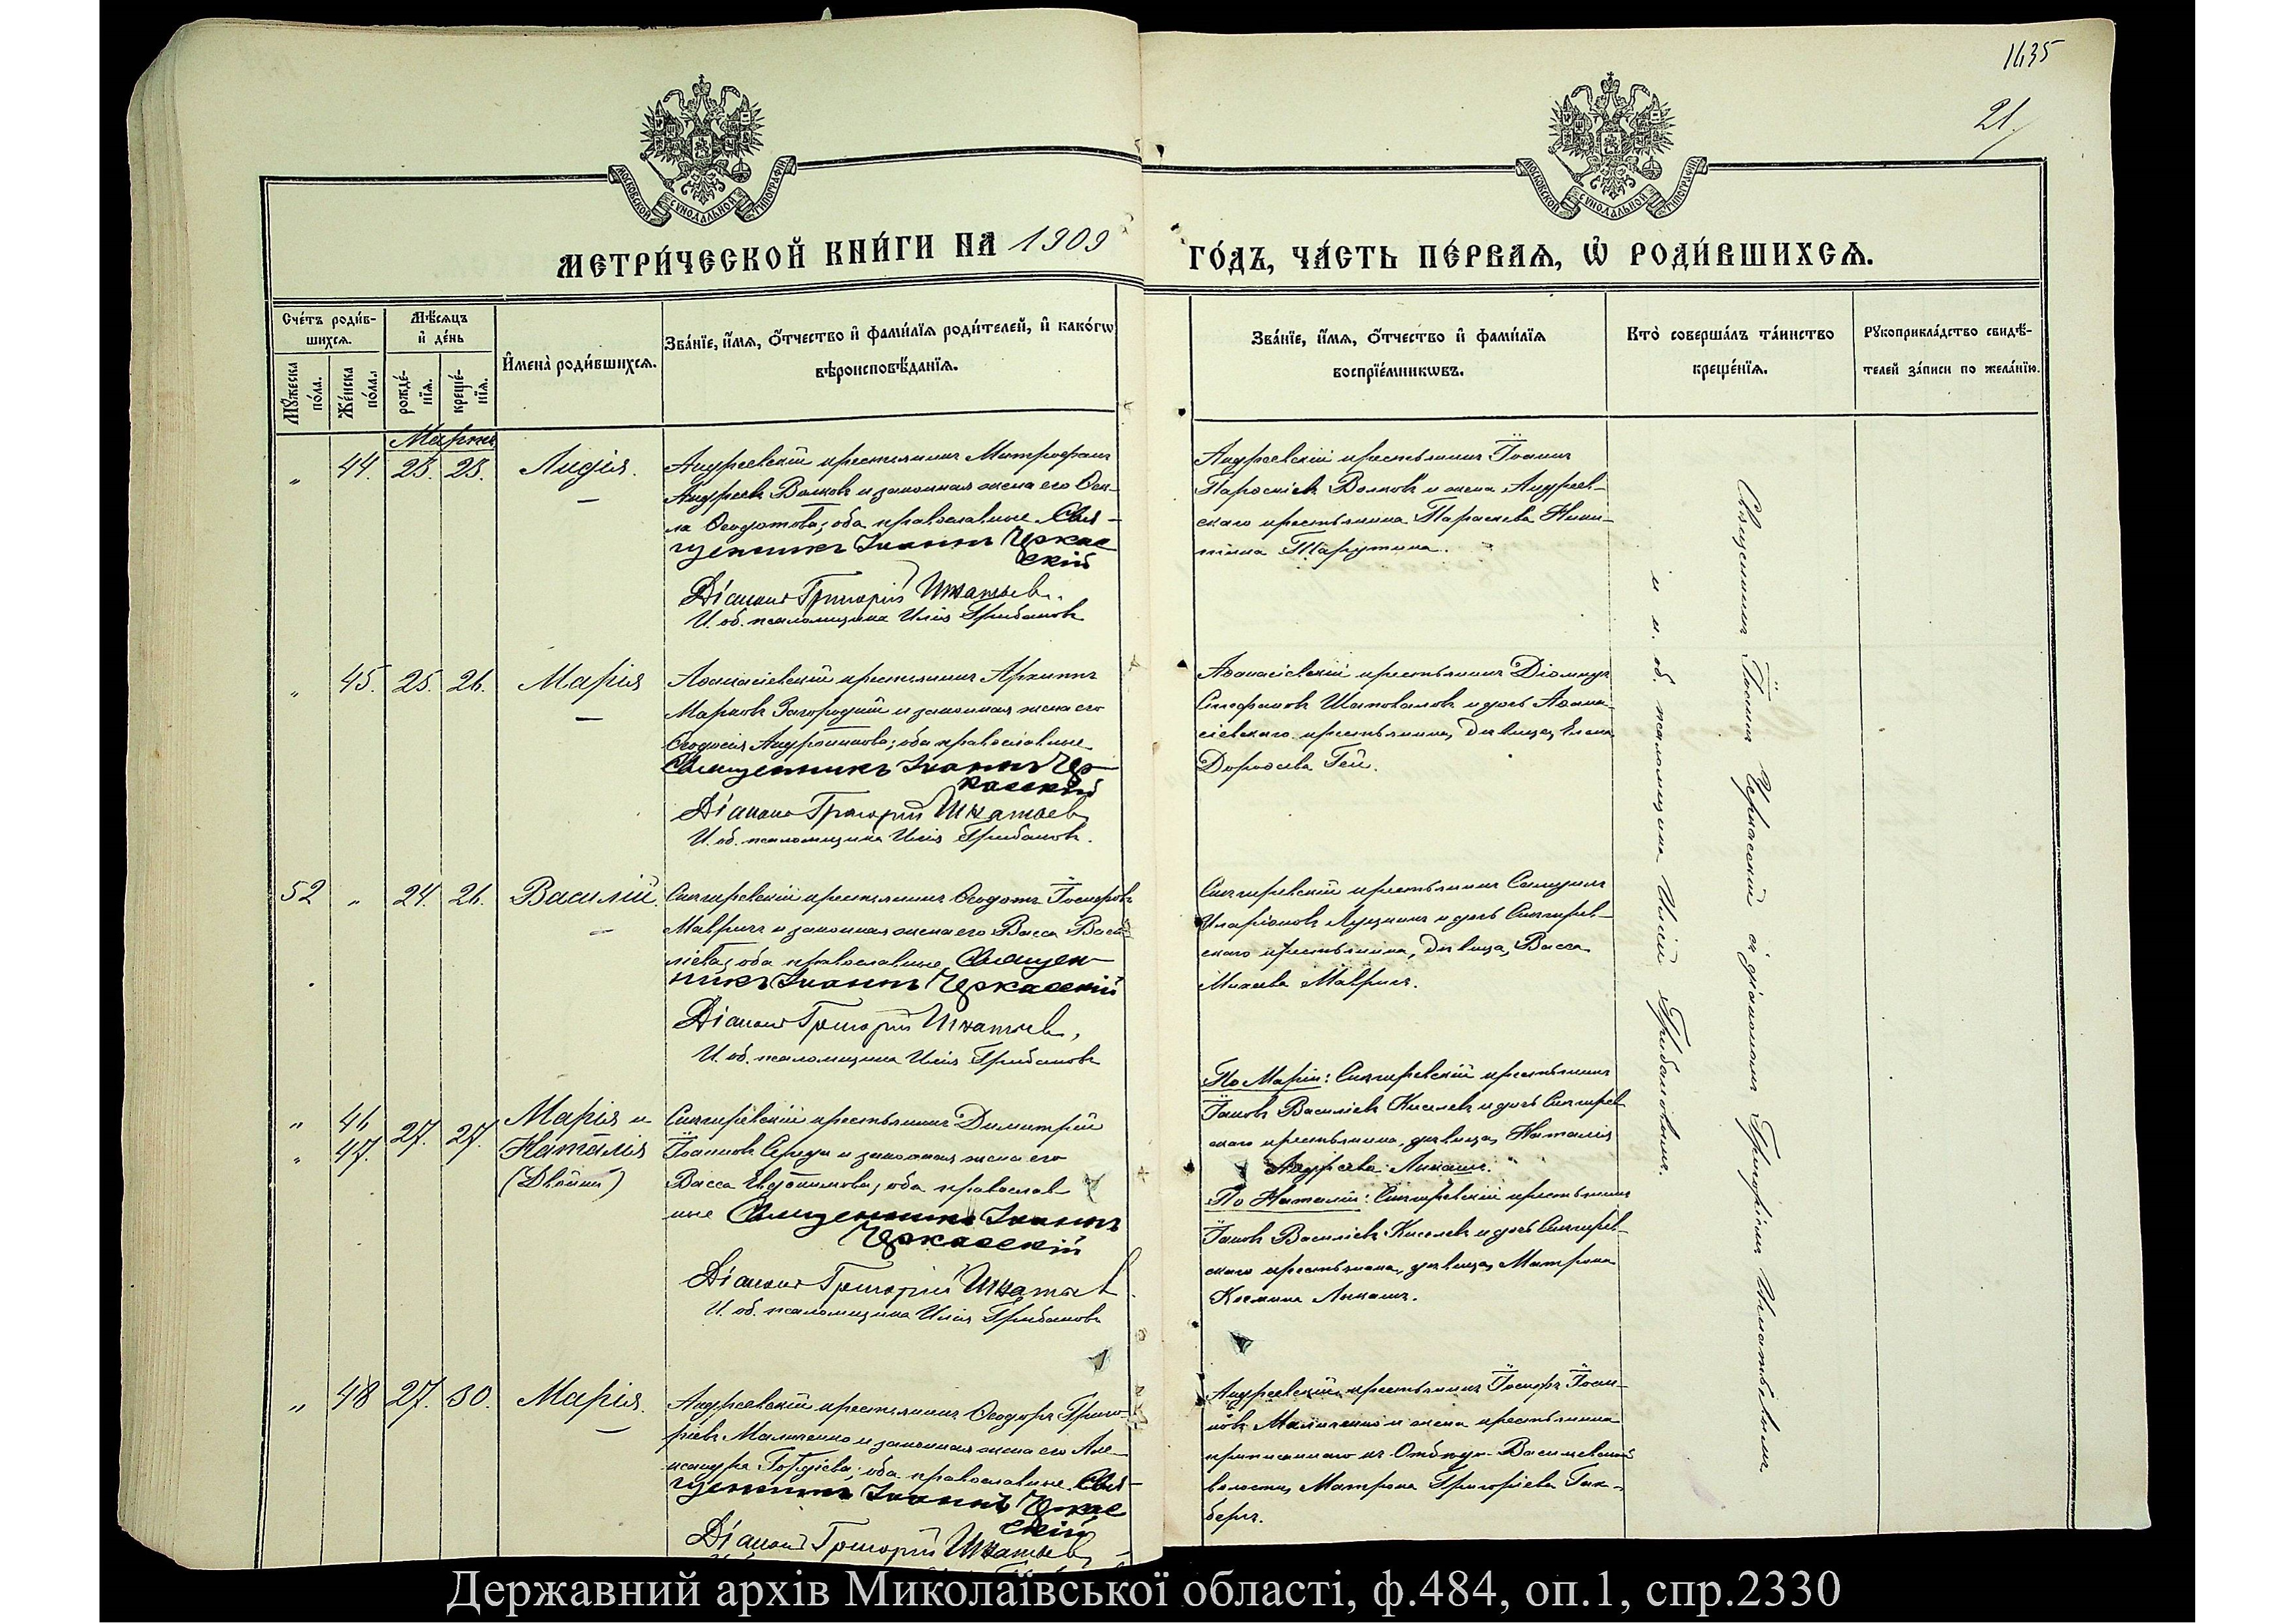 1435
21
МОСКОВСКОЙ СѴНОДАЛЬНОЙ ТИПОГРАФІИ
МОСКОВСКОЙ СѴНОДАЛЬНОЙ ТИПОГРАФІИ
МЕТРИ́ЧЕСКОЙ КНИ́ГИ НА 1909
ГО́ДЪ, ЧА́СТЬ ПЕ́РВАѦ, Ѡ҆ РОДИ́ВШИХСѦ.
Сче́тъ роди́в-
шихсѧ.
Мѣ́сѧцъ
и҆ де́нь
Мꙋ́жеска
по́ла.
Же́нска
по́ла.
рожде́-
нїѧ.
креще́-
нїѧ.
И҆мена̀ роди́вшихсѧ.
Зва́нїе, и҆́мѧ, ѻ҆́тчество и҆ фами́лїѧ роди́телей, и҆ како́гѡ
вѣроисповѣ́данїѧ.
Зва́нїе, и҆́мѧ, ѻ҆́тчество и҆ фами́лїѧ
воспрїе́мникѡвъ.
Кто̀ соверша́лъ та́инство
креще́нїѧ.
Рꙋкоприкла́дство свидѣ́-
телей за́писи по жела́нїю.
Мартъ
" 44. 23. 23. Лидія.
Андреевскій крестьянинъ Митрофанъ
Андреевъ Волковъ и законная жена его Оек-
ла Ѳеодотова; оба православные Свя-
щенникъ Іоаннъ Черкас
скій
Діаконъ Григорій Игнатьевъ.
И. об. псаломщика Илія Грибановъ
Андреевскій крестьянинъ Іоаннъ
Волковъ и жена Андреев-
скаго крестьянина Параскева Ники-
тина
" 45. 25. 26. Марія
Аѳанасіевскій крестьянинъ Архиппъ
Марковъ Загородній и законная жена его
Ѳеодосія Андроникова; оба православные
Священникъ Іоаннъ Чер
касскій
Діаконъ Григорій Игнатьевъ
И. об. псаломщика Илія Грибановъ.
Аѳанасіевскій крестьянинъ Діомидъ
Стефановъ Шаповаловъ и дочь Аѳана-
сіевскаго крестьянина, дѣвица, Елена
Дороѳеева Гей.
52 " 24. 26. Василій.
Снигиревскій крестьянинъ Ѳеодотъ Іосифовъ
Мавринъ и законная жена его Васса Васи-
ліева; оба православные Священ
никъ Іоаннъ Черкасскій
Діаконъ Григорій Игнатьевъ,
И. об. псаломщика Илія Грибановъ
Снигиревскій крестьянинъ Самуилъ
Иларіоновъ и дочь Снигирев-
скаго крестьянина, дѣвица, Васса
Михеева Мавринъ.
" 46 27. 27. Марія и
" 47. Наталія
(Двойни)
Снигиревскій крестьянинъ Димитрій
Іоанновъ Середа и законная жена его
Васса Евдокимова; оба православ-
ные Священникъ Іоаннъ
Черкасскій
Діаконъ Григорій Игнатьевъ
И. об. псаломщика Илія Грибановъ
По Маріи: Снигиревскій крестьянинъ
Іаковъ Василіевъ Киселевъ и дочь Снигирев
скаго крестьянина, дѣвица, Наталія
Андреева Лукашъ.
По Наталіи: Снигиревскій крестьянинъ
Іаковъ Василіевъ Киселевъ и дочь Снигирев-
скаго крестьянина, дѣвица, Матрона
Космина Лукашъ.
" 48 27. 30. Марія.
Андреевскій крестьянинъ Ѳеодоръ Григо-
ріевъ Маличенко и законная жена его Але-
ксандра Гордіева; оба православные. Свя-
щенникъ Іоаннъ Черкас
скій
Діаконъ Григорій Игнатьевъ
Андреевскій крестьянинъ Іосифъ Іоан-
новъ Маличенко и жена крестьянина
волости, Матрона Григоріева Ган-
берг.
Священникъ Іоаннъ Черкасскій съ діакономъ Григоріемъ Игнатьевымъ
и и. об. псаломщика Иліей Грибановымъ.
Державний архів Миколаївської області, ф.484, оп.1, спр.2330